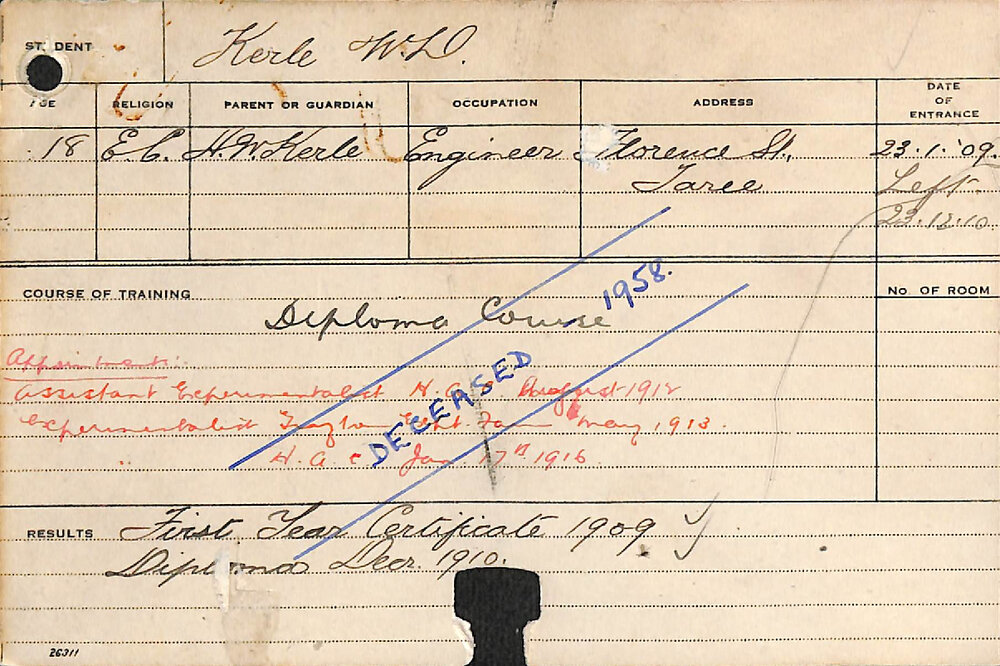 STUDENT Kerle W.D.
AGE RELIGION PARENT OR GUARDIAN OCCUPATION ADDRESS DATE OF ENTRANCE
18 E.C. H.W. Kerle Engineer Florence St., 23.1.'09.
Taree Left
23.12.10.
COURSE OF TRAINING No. OF ROOM
Diploma Course
1958.
DECEASED
Appointments:
Assistant Experimentalist H.A.C. August 1912
Experimentalist Expt. Farm May 1913.
" H.A.C. Jan. 17th 1916.
RESULTS First Year Certificate 1909
Diploma Decr. 1910.
26311